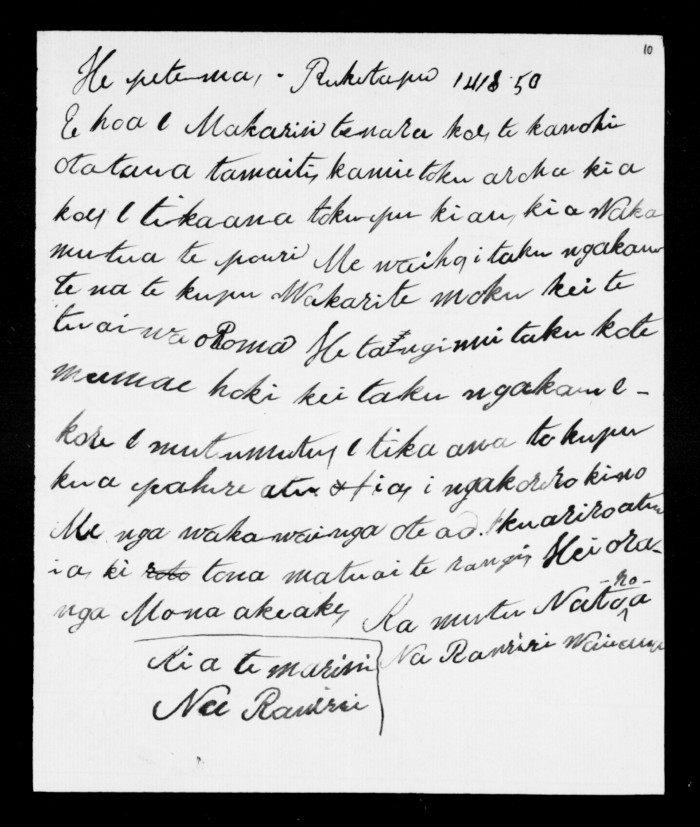 10
He petema, - Puketapu 1418.50
E hoa e Makarini tenara koe, te kanohi
otatawa tamaiti, kanui toku aroha ki a
koe, e tika ana tokupu ki au, ki a Waka
mutua te pouri Me waiho, i taku ngakau
te na te kupu Wakarite moku kei te
tuai wa oRoma He tangi nui taku kote
mamae hoki kei taku ngakau e -
kore e mutumutu, e tika ana to kupu
kua pahure atu ia, i ngakorero kino
Me nga waka wainga ote ao. kuariro atu
ia, ki roto tona matuai te rangi, Hei ora-
nga Mona akeake, Ka mutu Natoa
-ho-
Na Raniri
Ki a te marini
Na Raniri